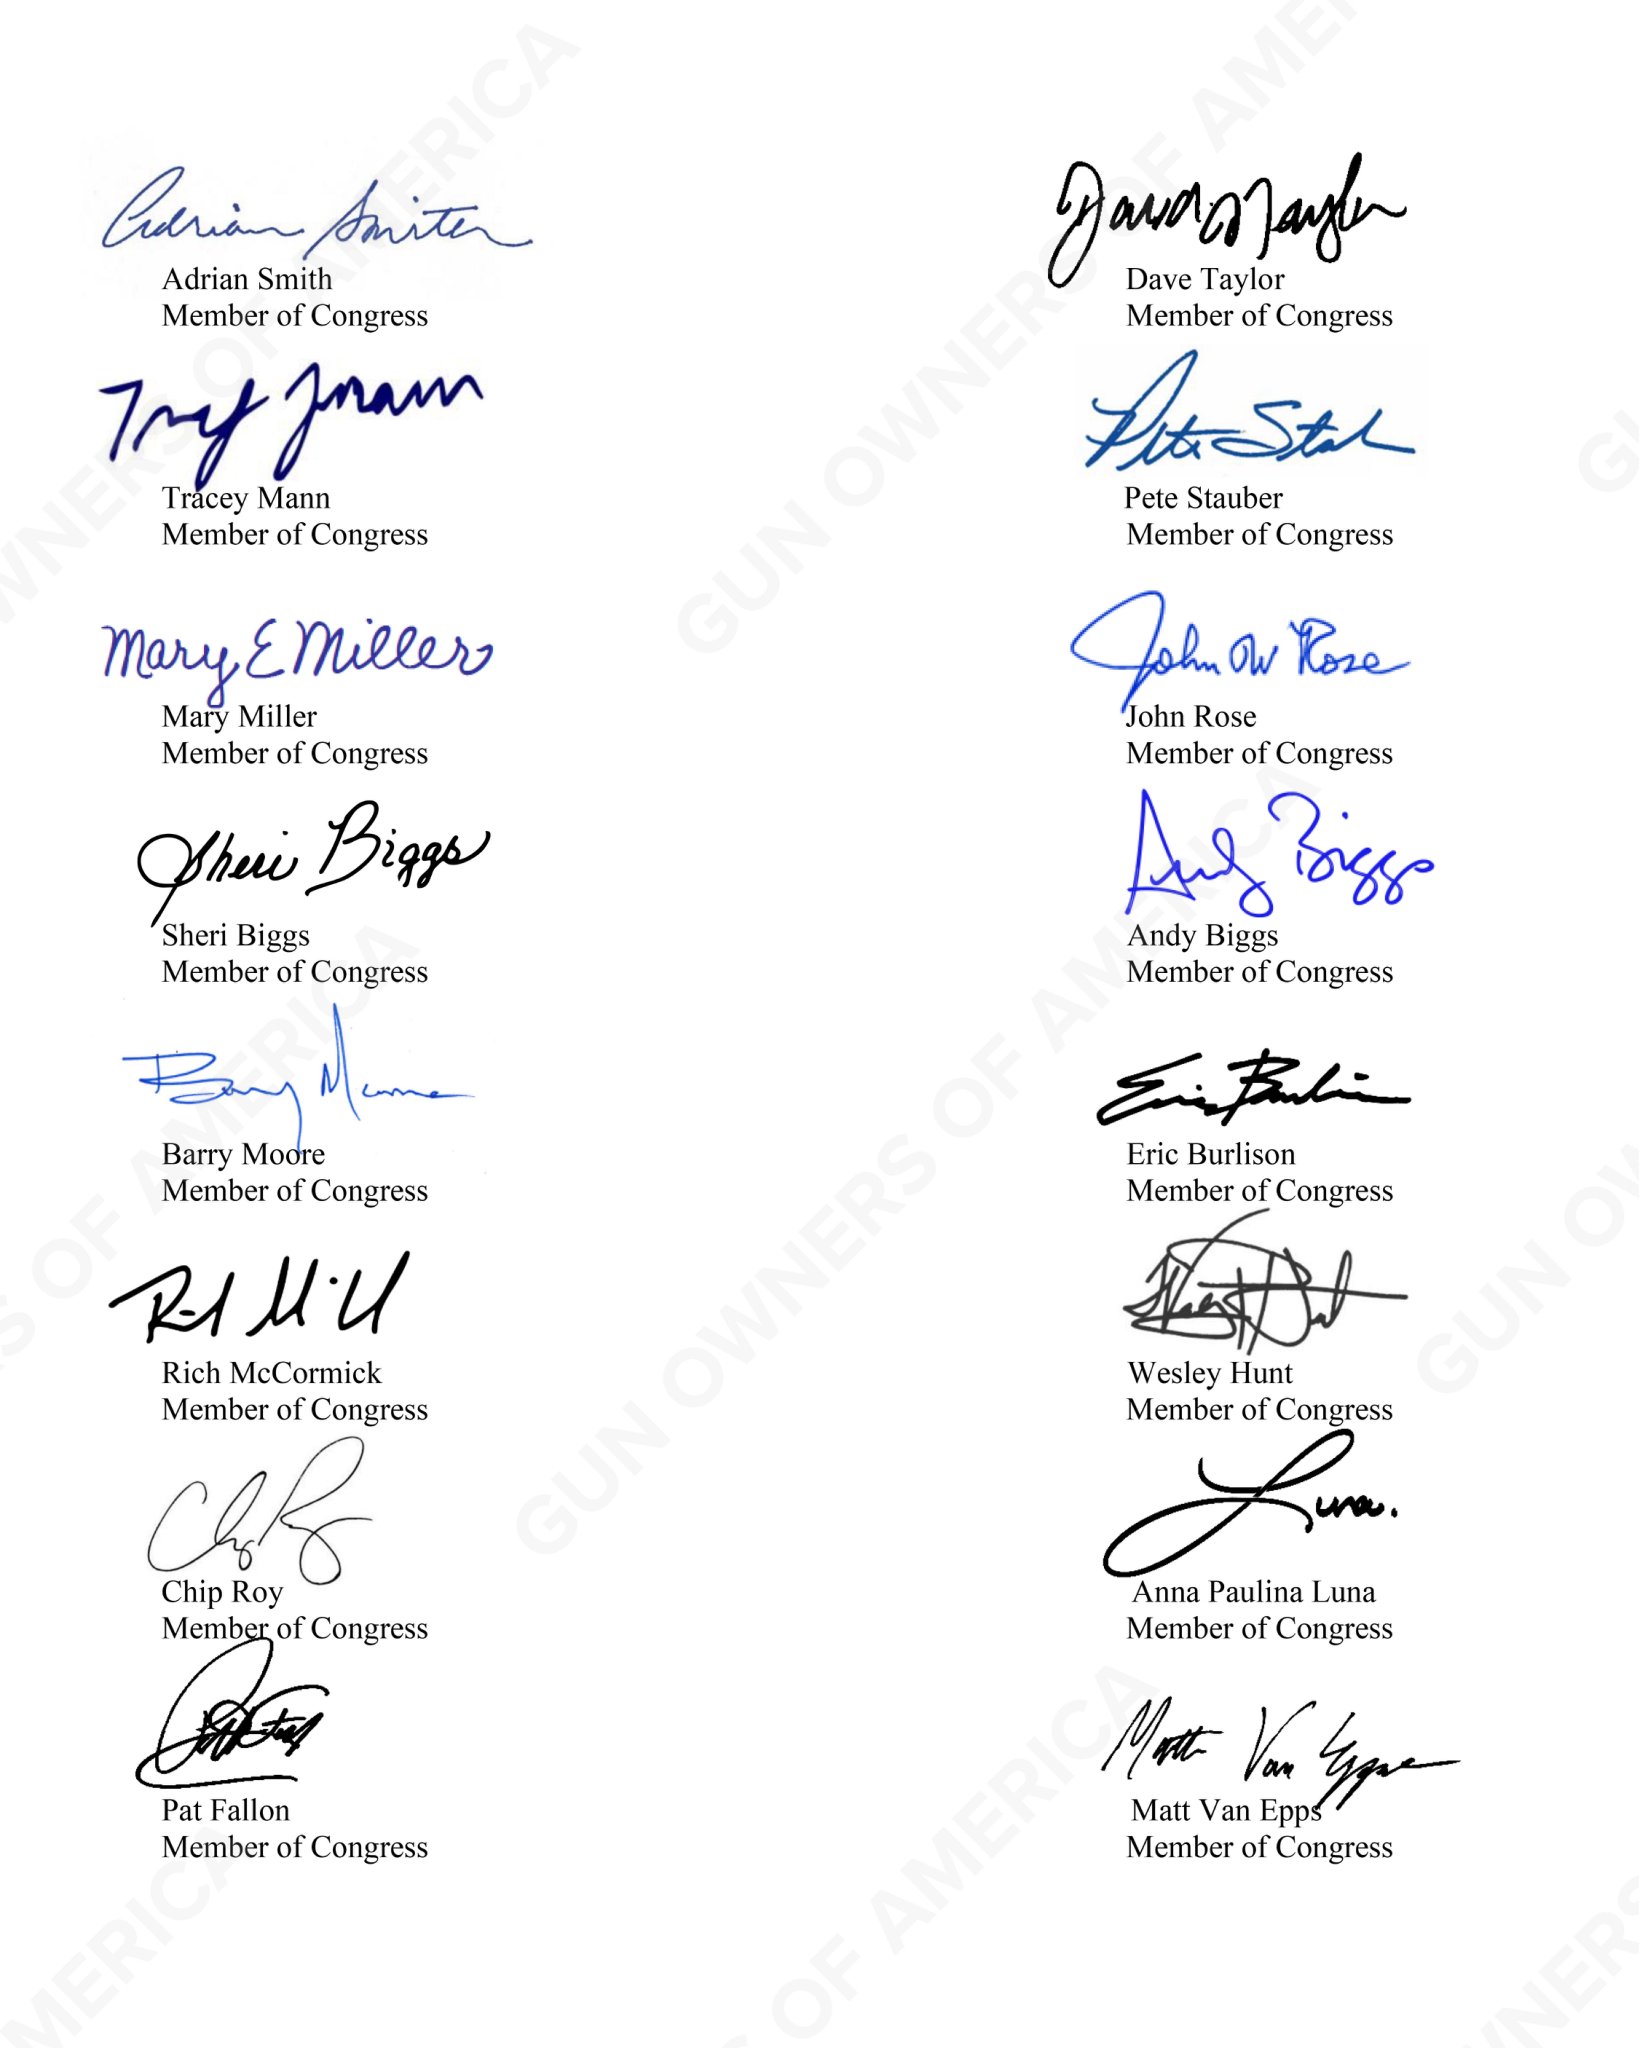 Adrian Smith
Adrian Smith
Member of Congress
David J Taylor
Dave Taylor
Member of Congress
Tracey Mann
Member of Congress
Pete Stauber
Member of Congress
Mary E Miller
Mary Miller
Member of Congress
John W Rose
John Rose
Member of Congress
Sheri Biggs
Sheri Biggs
Member of Congress
Andy Biggs
Andy Biggs
Member of Congress
Barry Moore
Barry Moore
Member of Congress
Eric Burlison
Member of Congress
Rich McCormick
Member of Congress
Wesley Hunt
Member of Congress
Chip Roy
Chip Roy
Member of Congress
Luna
Anna Paulina Luna
Member of Congress
Pat Fallon
Member of Congress
Matt Van Epps
Matt Van Epps
Member of Congress
GUN OWNERS OF AMERICA